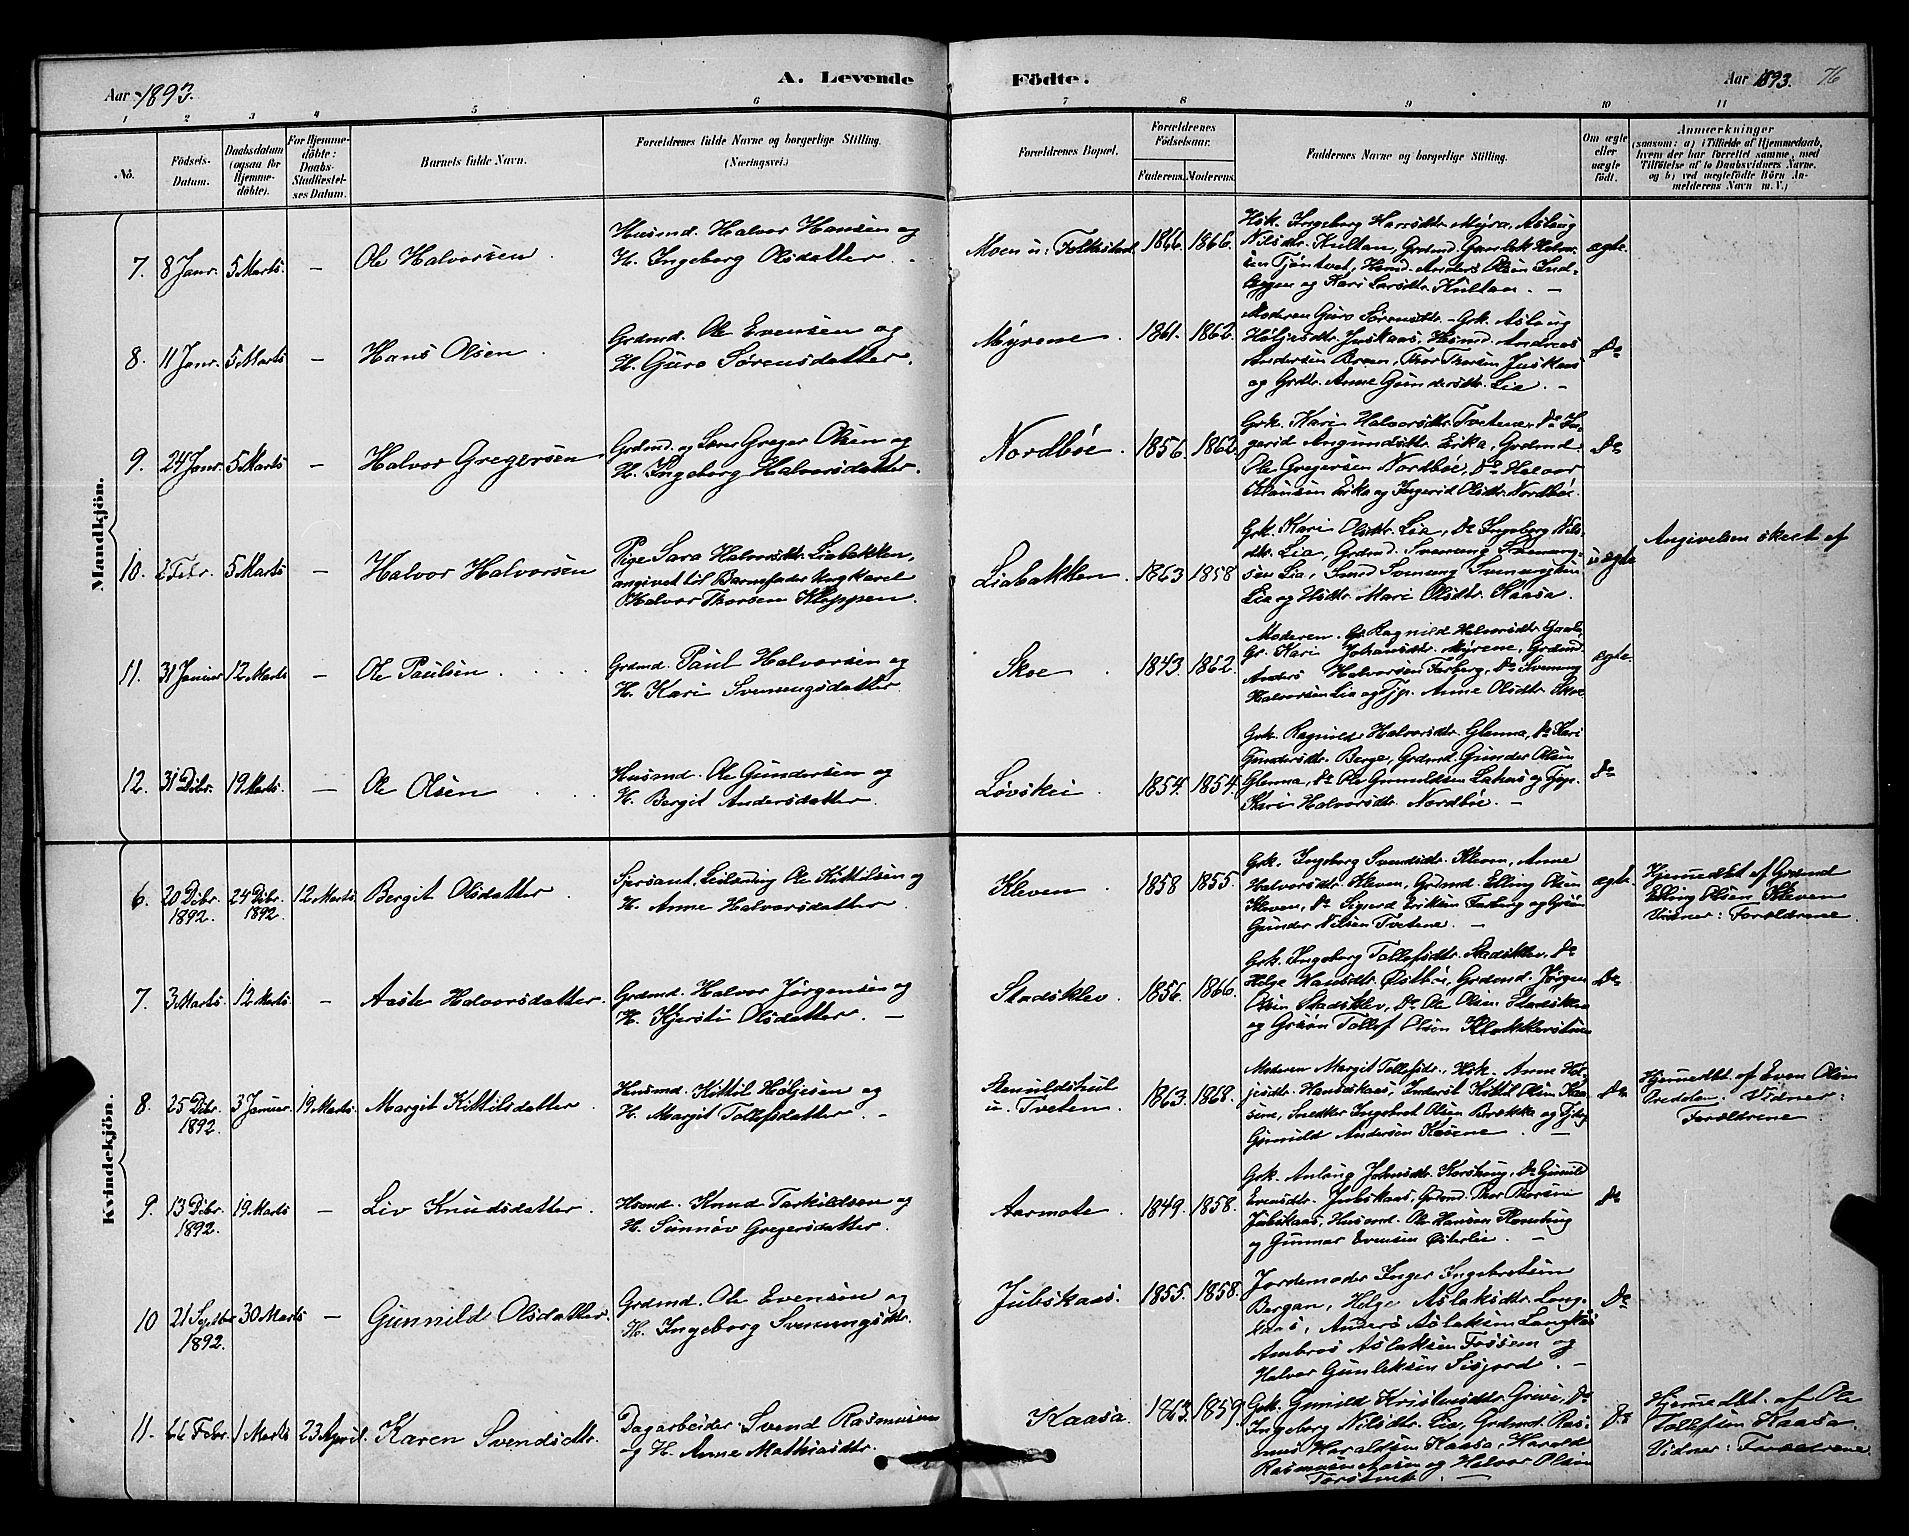 Aar 1893.
A. Levende
Födte.
Aar 1893. 76
1 2 3 4 5 6 7 8 9 10 11
No.
Födsels-Datum.
Daabsdatum (ogsaa for Hjemmedöbte).
For Hjemmedöbte: Daabs-Stadfæstelses Datum.
Barnets fulde Navn.
Forældrenes fulde Navne og borgerlige Stilling. (Næringsvei.)
Forældrenes Bopæl.
Forældrenes Födselsaar.
Faderens. Moderens.
Faddernes Navne og borgerlige Stilling.
Om ægte eller uægte födt.
Anmærkninger
(saasom: a) i Tilfælde af Hjemmedaab, hvem der har forrettet samme, med Tilföielse af to Daabsvidners Navne, og b) ved uægtefödte Börn Anmelderens Navn m. V.)
Mandkjön.
7. 8 Janr. 5 Marts. – Ole Halvorsen
Husmd. Halvor Hansen og
H. Ingeborg Olsdatter.
Moen u: Folkestad 1866. 1866.
Hsk. Ingeborg Hansdtr. Myra, Aslaug
Nilsdtr. Kultan, Grdmd. Gunlek Halvor-
sen Tjöntvet, Hsmd. Anders Olsen Ind-
læggen og Kari Larsdtr. Kultan. –
ægte.
8. 11 Janr. 5 Marts – Hans Olsen
Grdmd. Ole Evensen og
H. Guro Sørensdatter.
Myrene 1861. 1862.
Moderen Guro Sørensdtr. – Grk. Aslaug
Høljesdtr. Juskaas, Husmd. Andreas
Andersen Breen, Thor Thorsen Juskaas
og Grdtr. Anne Gundersdtr. Lia. –
Do
9. 24 Janr. 5 Marts – Halvor Gregersen
Grdmd. og Lærer Greger Olsen og
H. Ingeborg Halvorsdatter.
Nordbøe. 1856. 1862.
Grk. Kari Halvorsdtr. Tvetene, Do In-
gerid Amundsdtr. Erika, Grdmd.
Ole Gregersen Nordbøe, Do Halvor
Klausen Erika og Ingerid Olsdtr. Nordbøe.
Do
10. 2 Febr. 5 Marts – Halvor Halvorsen
Pige Sara Halvorsdtr. Liabakken,
angivet til Barnefader Ungkarl
Halvor Thorsen Kleppen.
Liabakken. 1863 1858
Grk. Kari Olsdtr. Lia, Do Ingeborg Nils-
dtr. Lia, Grdmd. Svenung Svenung-
sen Lia, Smed Svenung Svenungsen
Lia og Hsdtr. Mari Olsdtr. Kaasa.
uægte
Angivelsen skeet af
11. 31 Januar 12 Marts – Ole Paulsen
Grdmd. Paul Halvorsen og
H. Kari Svenungsdatter.
Skoe 1843. 1862.
Moderen. Gk. Ragnild Halvorsdtr.
Gk. Kari Johansdtr. Myrene, Grdmd.
Anders Halvorsen Farberg, Do Svenung
Halvorsen Lia og Tjp. Anne Olsdtr. Skoe
ægte.
12. 31 Dibr. 19 Marts. – Ole Olsen
Husmd. Ole Gundersen og
H. Bergit Andersdatter.
Løvskei 1854. 1854.
Grk. Ragnild Halvorsdtr. Glenna, Do Kari
Gundersdtr. Berge, Grdmd. Gunder Olsen
Glenna, Do Ole Gunuldsen Lahus og Tjp.
Kari Halvorsdtr. Nordbøe. –
Do
Kvindekjön.
6. 20 Dibr. 1892. 24 Dibr. 1892. 12 Marts. Bergit Olsdatter.
Spesant, Leilænding Ole Kittilsen og
H. Anne Halvorsdatter.
Kleven 1858 1855.
Grk. Ingeborg Svendsdtr. Kleven, Anne
Halvorsdtr. Kleven, Grdmd. Elling Olsen
Kleven, Do Sigurd Eriksen Farberg og Grsøn
Gunder Nilsen Tvetene. –
ægte.
Hjemmedbt. af Grdmd
Elling Olsen Kleven
Vidner: Forældrene.
7. 3 Marts. 12 Marts – Aaste Halvorsdatter.
Grdmd. Halvor Jørgensen og
H. Kjersti Olsdatter. –
Stadsklev 1856. 1866.
Grk. Ingeborg Tollefsdtr. Stadsklev, Do
Helge Hansdtr. Østbøe, Grdmd. Jørgen
Olsen Stadsklev, Do Ole Olsen Stadsklev
og Grsøn Tollef Olsen Klokkerstuen
Do
8. 25 Dibr. 1892. 3 Januar. 19 Marts. Margit Kittilsdatter.
Husmd. Kittil Høljesen og
H. Margit Tollefsdatter. –
u: Tveten. 1863. 1868.
Moderen Margit Tollefsdtr. Hsk. Anne Høl-
jesdtr. Handskaas, Inderst Kittil Olsen Kaa-
sene, Snedker Ingebret Olsen Brekka og Tjdg.
Gunnild Andersen Kåsene. –
Do
Hjemmedbt. af Even Olsen
Vidner:
Forældrene
9. 13 Dibr. 1892. 19 Marts – Liv Knudsdatter.
Hsmd. Knud Tarkildsen og
H. Sunnøv Gregersdatter.
Aarmote. 1849. 1858.
Grk. Anlaug Johnsdtr. Do Gunild
Evensdtr. Jubskaas, Grdmd. Thor Thorsen
Jubskaas, Husmd. Ole Hansen
og Gunnar Evensen Østerlie. –
Do
10 21 Septbr 1892. 30 Marts – Gunnild Olsdatter.
Grdmd. Ole Evensen og
H. Ingeborg Svenungsdtr.
Jubskaas. 1855. 1858.
Jordemoder Inger Ingebretsen
Bergan, Helge Aslaksdtr. Lang-
kaas, Anders Aslaksen Langkås
Ambros Aslaksen Fossem og
Halvor Gunleksen Sisjord. –
Do
11. Febr. 1 Marts 23 April. Karen Svendsdtr.
Dagarbeider Svend Rasmusen
og H. Anne Mathiasdtr.
Kaasa. 1863. 1859.
Grk. Gunild Kristensdtr. Grive, Do
Ingeborg Nilsdtr. Lia, Grdmd. Ras-
mus Haraldsen Kaasa, Harald
Rasmusen Aasen og Halvor Olsen
Do
Hjemmedbt. af Ole
Tollefsen Kaasa.
Vidner: Forældrene